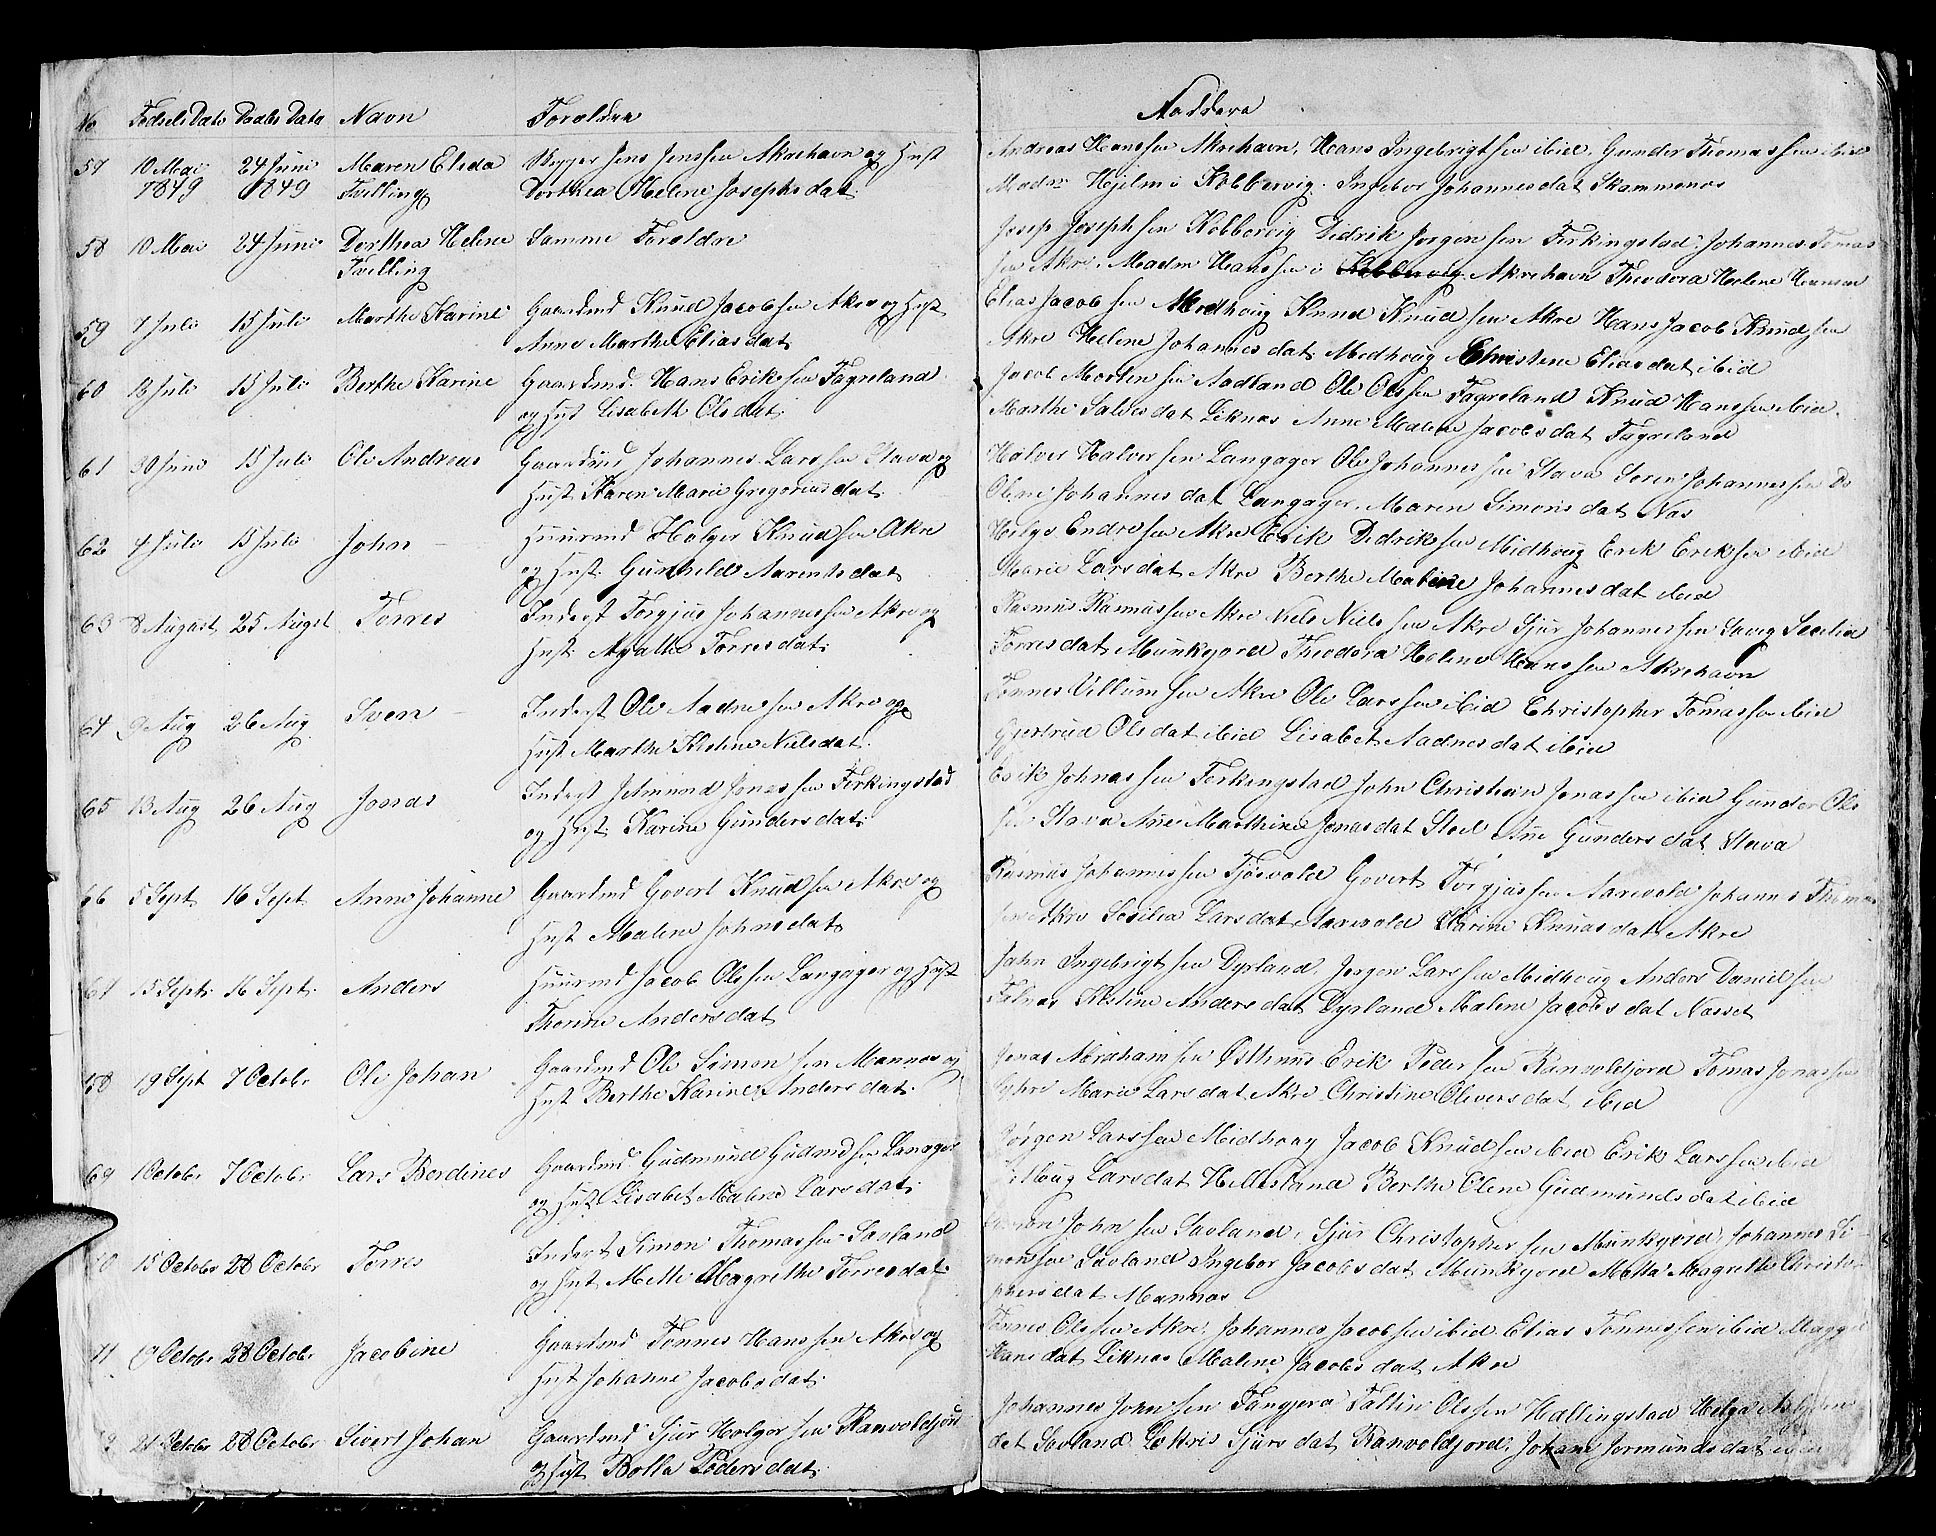 No Fødsels Dato Daabs Dato Navn Foreldre Faddere
57 10 Mai 24 Juni Maren Elida Bygger Jens Jenssen Akrehavn og Hust
1849 1849 Tvilling Dorthea Helene Josephsdat
Andreas Hanssen Akrehavn, Hans Ingebrigtsen ibid. Gunder Thomassen ibid
Madm Hjelm i Kobbervig. Ingebor Johannesdat Skammenes
58 10 Mai 24 Juni Dorthea Helene Samme Foreldre
Tvilling
Josep Josephsen Kobbervig Didrik Jørgensen Ferkingstad, Johannes Tomas
sen Akre, Madm Hanssen i Akrehavn Theodora Helene Hansen
59 7 Juli 15 Juli Marthe Karine Gaardmd Knud Jacobsen Akre og Hust
Anne Marthe Eliasdat
Elias Jacobsen Medhoug Knud Knudsen Akre Hans Jacob Knudsen
Akre Helene Johannesdat Medhoug Christene Eliasdat ibid
60 13 Juli 15 Juli Berthe Karine Gaardmd. Hans Eriksen Fagreland
og Hust Lisabeth Olsdat
Jacob Mortensen Aadland Ole Olssen Fagreland Knud Hanssen ibid.
Marthe Salvesdat Liknes Anne Malene Jacobsdat Fagreland
61 30 Juni 15 Juli Ole Andreas Gaardmd Johannes Larssen Stava og
Hust. Karen Marie Gregoriusdat
Halver Halversen Langager Ole Johannessen Stava Søren Johannessen Do
Oline Johannesdat Langager, Maren Simonsdat Næs
62 4 Juli 15 Juli John Huusmd Holger Knudsen Akre
og Hust. Gunhild Aarentsdat
Helge Endresen Akre Erik Didriksen Midhoug Erik Eriksen ibid
Marie Larsdat Akre Berthe Malene Johannesdat ibid
63 8 August 25 Augst Torres Inderst Torgjus Johannessen Akre og
Hust. Agathe Torresdat.
Rasmus Rasmussen Akre Niels Nielssen Akre Sjur Johannessen Sævig Secilia
Torresdat Munkejord Theodora Helene Hanssen Akrehavn
64 9 Aug 26 Aug Sven Inderst Ole Aadnessen Akre og
Hust Marthe Kistine Nielsdat.
Tønnes Villumsen Akre Ole Larssen ibid Christopher Tomassen ibid
Gjertrud Olsdat ibid Lisabet Aadnesdat ibid
65 13 Aug 26 Aug Jonas Inderst Jetmund Jonassen Ferkingstad
og Hust. Karine Gundersdat.
Erik Johnassen Ferkingstad John Christian Jonassen ibid Gunder Ols
sen Stava Ane Marthine Jonasdat Stol Ane Gundersdat Stava
66 5 Sept 16 Sept Anne Johanne Gaardmd Govert Knudsen Akre og
Hust Malene Johnsdat
Rasmus Johannessen Tjøsvold Govert Torgjussen Aarevold Johannes Thomas
sen Akre Sesilia Larsdat Aarevold Karine Knudsdat Akre
67 15 Sept. 16 Sept. Anders Huusmd Jacob Olssen Langager og Hust
Thorine Andersdat
John Ingebrigtsen Dyrland, Jørgen Larssen Midhoug Anders Danielsen
Falnes Kistine Andersdat Dyrland Malene Jacobsdat Næsset
68 19 Sept 7 Octobr Ole Johan Gaardmd Ole Simonsen Mannes og
Hust Berthe Karine Andersdat.
Jonas Abrahamsen Østhuus Erik Pedersen Ranvoldjord Tomas Jonassen
Syhre Marie Larsdat Akre Christine Oliversdat ibid
69 1 Octobr 7 Octobr Lars Berdines Gaardmd Gudmund Gudmdsen Lanager
og Hust Lisabet Malene Larsdat.
Jørgen Larssen Midhoug Jacob Knudsen ibid Erik Larssen ibid
Larsdat Hellestand Berthe Oline Gudmundsdat ibid
70 15 Octobr 28 Octobr Torres Inderst Simon Thomassen Sævland
og Hust. Mette Magrethe Torresdat.
Johnsen Sævland, Sjur Christophersen Munkejord, Johannes Si-
monsen Sævland Ingebor Jacobsdat Munkejord Metta Magrethe Christo-
phersdat Mannes
71 19 Octobr 28 Octobr Jacobine Gaardmd Tønnes Hanssen Akre og
Hust Johanne Jacobsdat.
Tønnes Olssen Akre, Johannes Jacobsen ibid Elias Tønnessen ibid Maggel
Hansdat Liknes Malene Jacobsdat Akre
72 21 Octobr 28 Octobr Sivert Johan Gaardmd Sjur Holgersen Ranvoldjord
og Hust Bolla Pedersdat.
Johannes Johnsen Tangjera Faltin Olssen Hallingstad Helga
dat Sævland Lettris Sjursdat Ranvoldjord, Johane Jormundsdat ibid